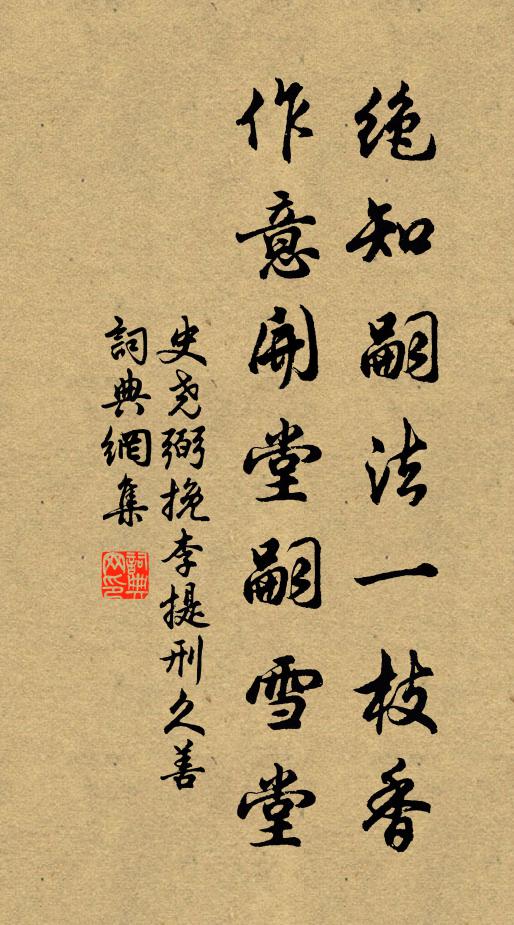 絶知嗣法一枝香
作意開堂嗣雪堂
史尧弼挽李提刑久善
詞典網集
詞典網印